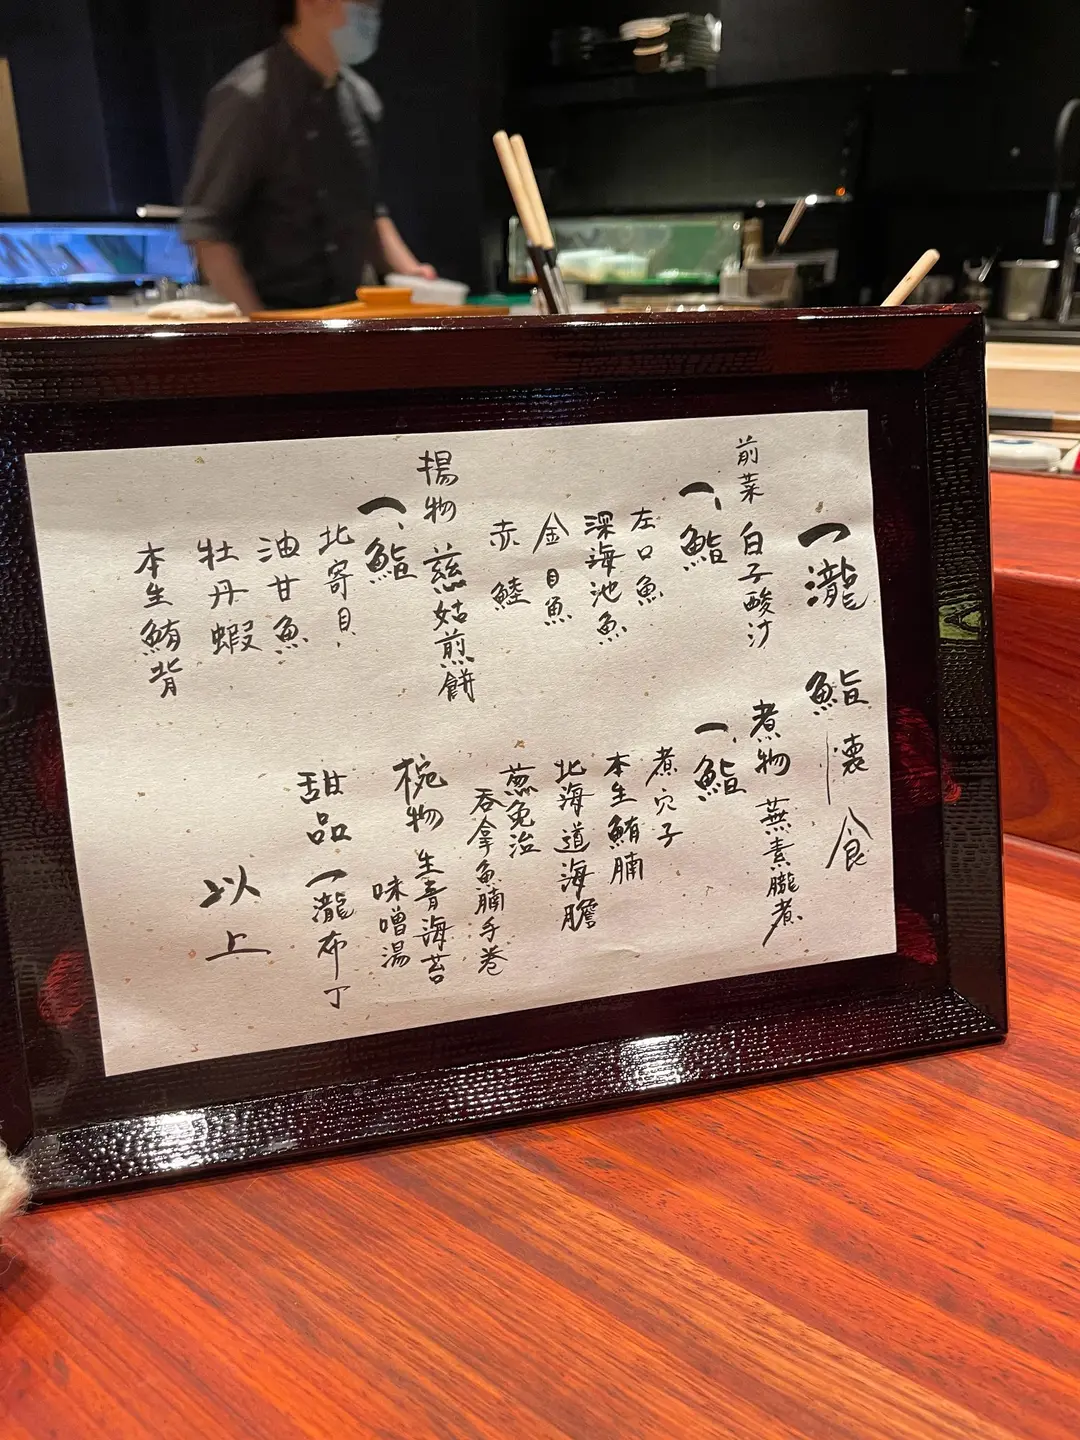 一瀧 鮨 懐食
前菜 白子酸汁
一、鮨
左口魚
深海池魚
金目魚
赤鯥
揚物 慈姑煎餅
一、鮨
北寄貝
油甘魚
牡丹蝦
本生鮪背
煮物 蕪素朧煮
一、鮨
煮穴子
本生鮪腩
北海道海膽
葱兔治
吞拿魚腩手卷
椀物 生青海苔
味噌湯
甜品 一瀧布丁
以上